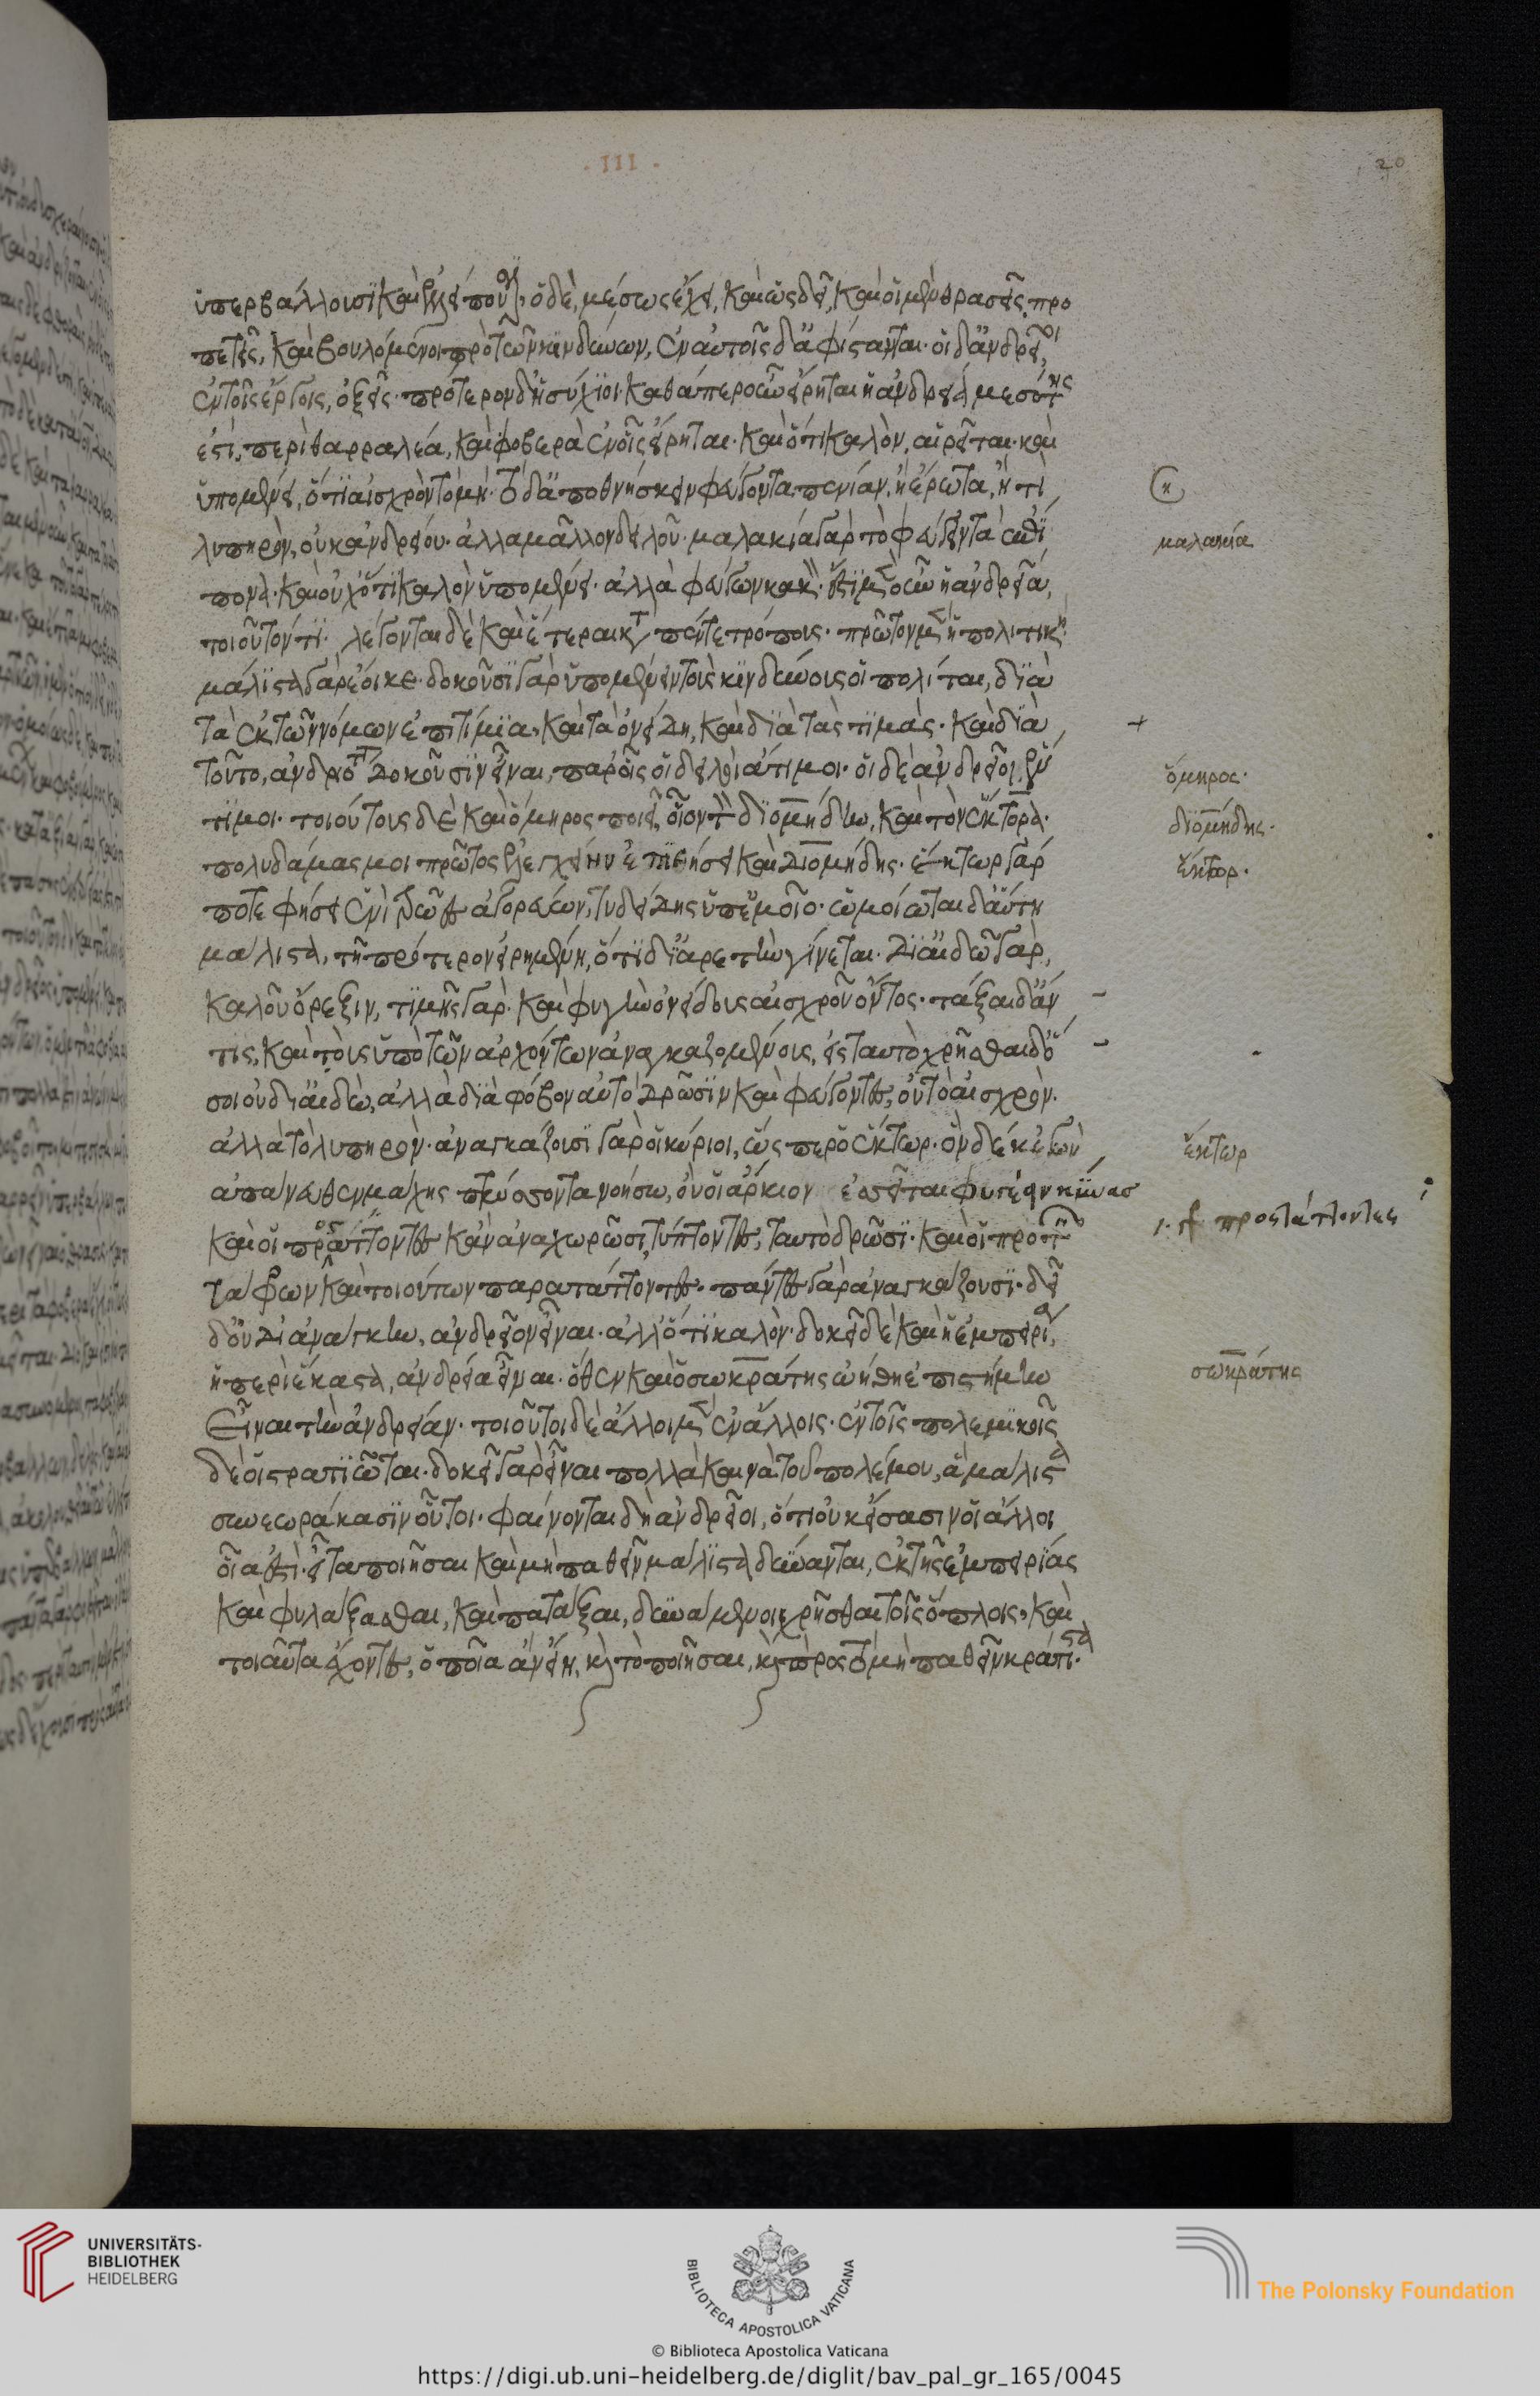 · III ·
20
ὑπερβάλλουσι καὶ ἐλλείπουσιν· ὁ δὲ, μέσως ἔχει, καὶ ὡς δεῖ, καὶ οἱ μὲν θρασεῖς, προ
πετεῖς, καὶ βουλόμενοι πρὸ τῶν κινδύνων, ἐν αὐτοῖς δ' ἀφίστανται· οἱ δ' ἀνδρεῖοι
ἐν τοῖς ἔργοις, ὀξεῖς· πρότερον δ' ἡσύχιοι· καθάπερ οὖν εἴρηται ἡ ἀνδρεία μεσότης
ἐστὶ, περὶ θαρραλέα, καὶ φοβερὰ ἐν οἷς εἴρηται· καὶ ὅτι καλὸν, αἱρεῖται· καὶ
ὑπομένει, ὅτι αἰσχρὸν τὸ μή· τὸ δ' ἀποθνήσκειν φεύγοντα πενίαν, ἢ ἔρωτα, ἤ τι
λυπηρὸν, οὐκ ἀνδρείου· ἀλλὰ μᾶλλον δειλοῦ· μαλακία γὰρ τὸ φεύγειν τὰ ἐπί
πονα· καὶ οὐχ ὅτι καλὸν ὑπομένει· ἀλλὰ φεύγων κακόν· ἔστι μὲν οὖν ἡ ἀνδρεία,
ποιοῦτόν τι· λέγονται δὲ καὶ ἕτεραι κατὰ πέντε τρόπους· πρῶτον μὲν ἡ πολιτικὴ·
μάλιστα γὰρ ἔοικε· δοκοῦσι γὰρ ὑπομένειν τοὺς κινδύνους οἱ πολίται, διὰ
τὰ ἐκ τῶν νόμων ἐπιτίμια· καὶ τὰ ὀνείδη, καὶ διὰ τὰς τιμάς· καὶ διὰ
τοῦτο, ἀνδρειότατοι δοκοῦσιν εἶναι, παρ' οἷς οἱ δειλοὶ ἄτιμοι· οἱ δὲ ἀνδρεῖοι, ἔν
τιμοι· τοιούτους δὲ καὶ ὅμηρος ποιεῖ, οἷον τὸν διομήδην, καὶ τὸν ἕκτορα·
πολυδάμας μοι πρῶτος ἐλεγχείην ἐπιθήσει καὶ Διομήδης· ἕκτωρ γάρ
ποτε φήσει ἐνὶ τρώεσσ' ἀγορεύων, τυδείδης ὑπ' ἐμοῖο· ὡμοίωται δ' αὕτη
μάλιστα, τῇ πρότερον εἰρημένῃ, ὅτι δι' ἀρετὴν γίνεται· Δι' αἰδῶ γὰρ,
καλοῦ ὄρεξιν, τιμῆς γὰρ· καὶ φυγὴν ὀνείδους αἰσχροῦ ὄντος· τάξαι δ' ἄν
τις, καὶ τοὺς ὑπὸ τῶν ἀρχόντων ἀναγκαζομένους, εἰς ταυτὸ χρῆσθαι δ' ὅ
σοι οὐ δι' αἰδῶ, ἀλλὰ διὰ φόβον αὐτὸ Δρῶσιν καὶ φεύγοντες, οὐ τὸ αἰσχρὸν·
ἀλλὰ τὸ λυπηρόν· ἀναγκάζουσι γὰρ οἱ κύριοι, ὥς περ ὁ ἕκτωρ· ὃν δέ κ' ἐγὼν
ἀπάνευθεν μάχης πτώσσοντα νοήσω, οὔ οἱ ἄρκιον ἐσσεῖται φυγέειν κύνας
καὶ οἱ προστάττοντες κἂν ἀναχωρῶσι τύπτοντες, ταυτὸ δρῶσι· καὶ οἱ πρὸ τῶν
τάφρων καὶ τοιούτων παρατάττοντες· πάντες γὰρ ἀναγκάζουσι· δεῖ
δ' οὐ Δι' ἀνάγκην, ἀνδρεῖον εἶναι· ἀλλ' ὅτι καλόν· δοκεῖ δὲ καὶ ἡ ἐμπειρία,
ἡ περὶ ἕκαστα, ἀνδρεία εἶναι· ὅθεν καὶ ὁ σωκράτης ᾠήθη ἐπιστήμην
Εἶναι τὴν ἀνδρείαν· τοιοῦτοι δὲ ἄλλοι μὲν ἐν ἄλλοις· ἐν τοῖς πολεμικοῖς
δὲ οἱ στρατιῶται· δοκεῖ γὰρ εἶναι πολλὰ κενὰ τοῦ πολέμου, ἃ μάλιστα
συνεωράκασιν οὗτοι· φαίνονται δὴ ἀνδρεῖοι, ὅτι οὐκ ἴσασιν οἱ ἄλλοι
οἷα ἐστί· εἶτα ποιῆσαι καὶ μὴ παθεῖν μάλιστα δύνανται, ἐκ τῆς ἐμπειρίας
καὶ φυλάξασθαι, καὶ πατάξαι, δυνάμενοι χρῆσθαι τοῖς ὅπλοις· καὶ
τοιαῦτα ἔχοντες, ὁποῖα ἂν εἴη, καὶ τὸ ποιῆσαι, καὶ πρὸς τὸ μὴ παθεῖν κράτιστα·
η
μαλακία
ὅμηρος·
διομήδης·
ἕκτορ·
ἕκτωρ
προστάττοντες
σωκράτης
UNIVERSITÄTS-
BIBLIOTHEK
HEIDELBERG
BIBLIOTECA APOSTOLICA VATICANA
The Polonsky Foundation
© Biblioteca Apostolica Vaticana
https://digi.ub.uni-heidelberg.de/diglit/bav_pal_gr_165/0045